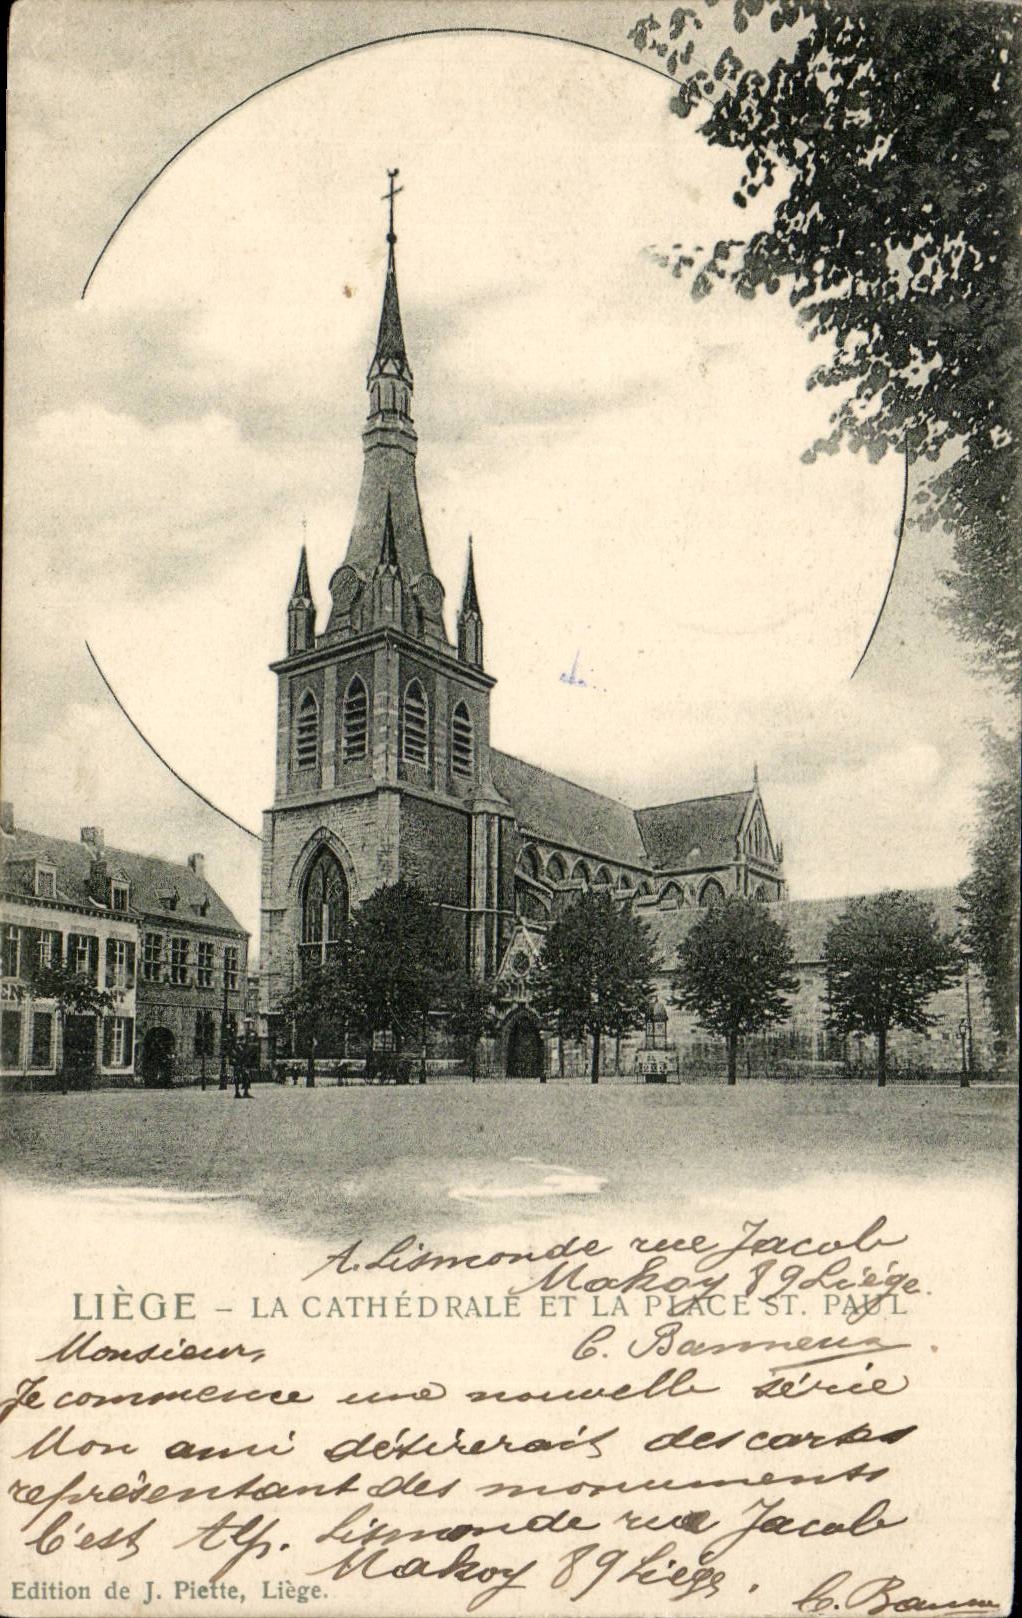 A. Lismonde rue Jacob
Makoy 89 Liége.
LIÈGE – LA CATHÉDRALE ET LA PLACE ST. PAUL
Monsieur,
C. Banneux.
Je commence une nouvelle série
Mon ami désirerait des cartes
représentant des monuments
C'est Alf. Lismonde rue Jacob
Makoy 89 Liége.
Edition de J. Piette, Liège.
C. Bann